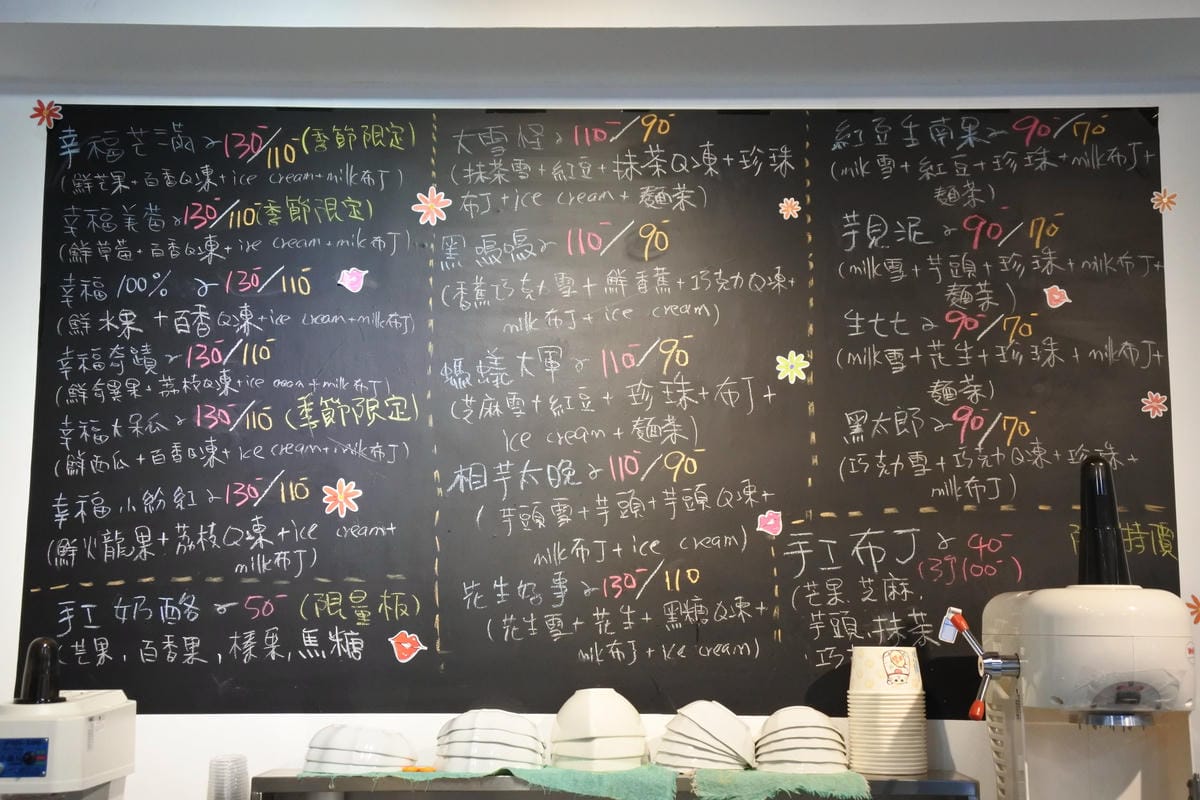 幸福芒滿~130/110(季節限定)
(鮮芒果+百香Q凍+ice cream+milk布丁)
幸福美莓~130/110(季節限定)
(鮮草莓+百香Q凍+ice cream+milk布丁)
幸福100%~130/110
(鮮水果+百香Q凍+ice cream+milk布丁)
幸福奇蹟~130/110
(鮮奇異果+荔枝Q凍+ice cream+milk布丁)
幸福大呆瓜~130/110(季節限定)
(鮮西瓜+百香Q凍+ice cream+milk布丁)
幸福小粉紅~130/110
(鮮火龍果+荔枝Q凍+ice cream+
milk布丁)
手工奶酪~50(限量板)
(芒果,百香果,榛果,焦糖
大雪怪~110/90
(抹茶雪+紅豆+抹茶Q凍+珍珠
布丁+ice cream+麵茶)
黑嗚嗚~110/90
(香蕉巧克力雪+鮮香蕉+巧克力Q凍+
milk布丁+ice cream)
螞蟻大軍~110/90
(芝麻雪+紅豆+珍珠+布丁+
ice cream+麵茶)
相芋太晚~110/90
(芋頭雪+芋頭+芋頭Q凍+
milk布丁+ice cream)
花生好事~130/110
(花生雪+花生+黑糖Q凍+
milk布丁+ice cream)
紅豆生南果~90/70
(milk雪+紅豆+珍珠+milk布丁+
麵茶)
芋見泥~90/70
(milk雪+芋頭+珍珠+milk布丁+
麵茶)
生七七~90/70
(milk雪+花生+珍珠+milk布丁+
麵茶)
黑太郎~90/70
(巧克力雪+巧克力Q凍+珍珠+
milk布丁)
手工布丁~40 特價
(3個100)
(芒果.芝麻.
芋頭.抹茶
巧